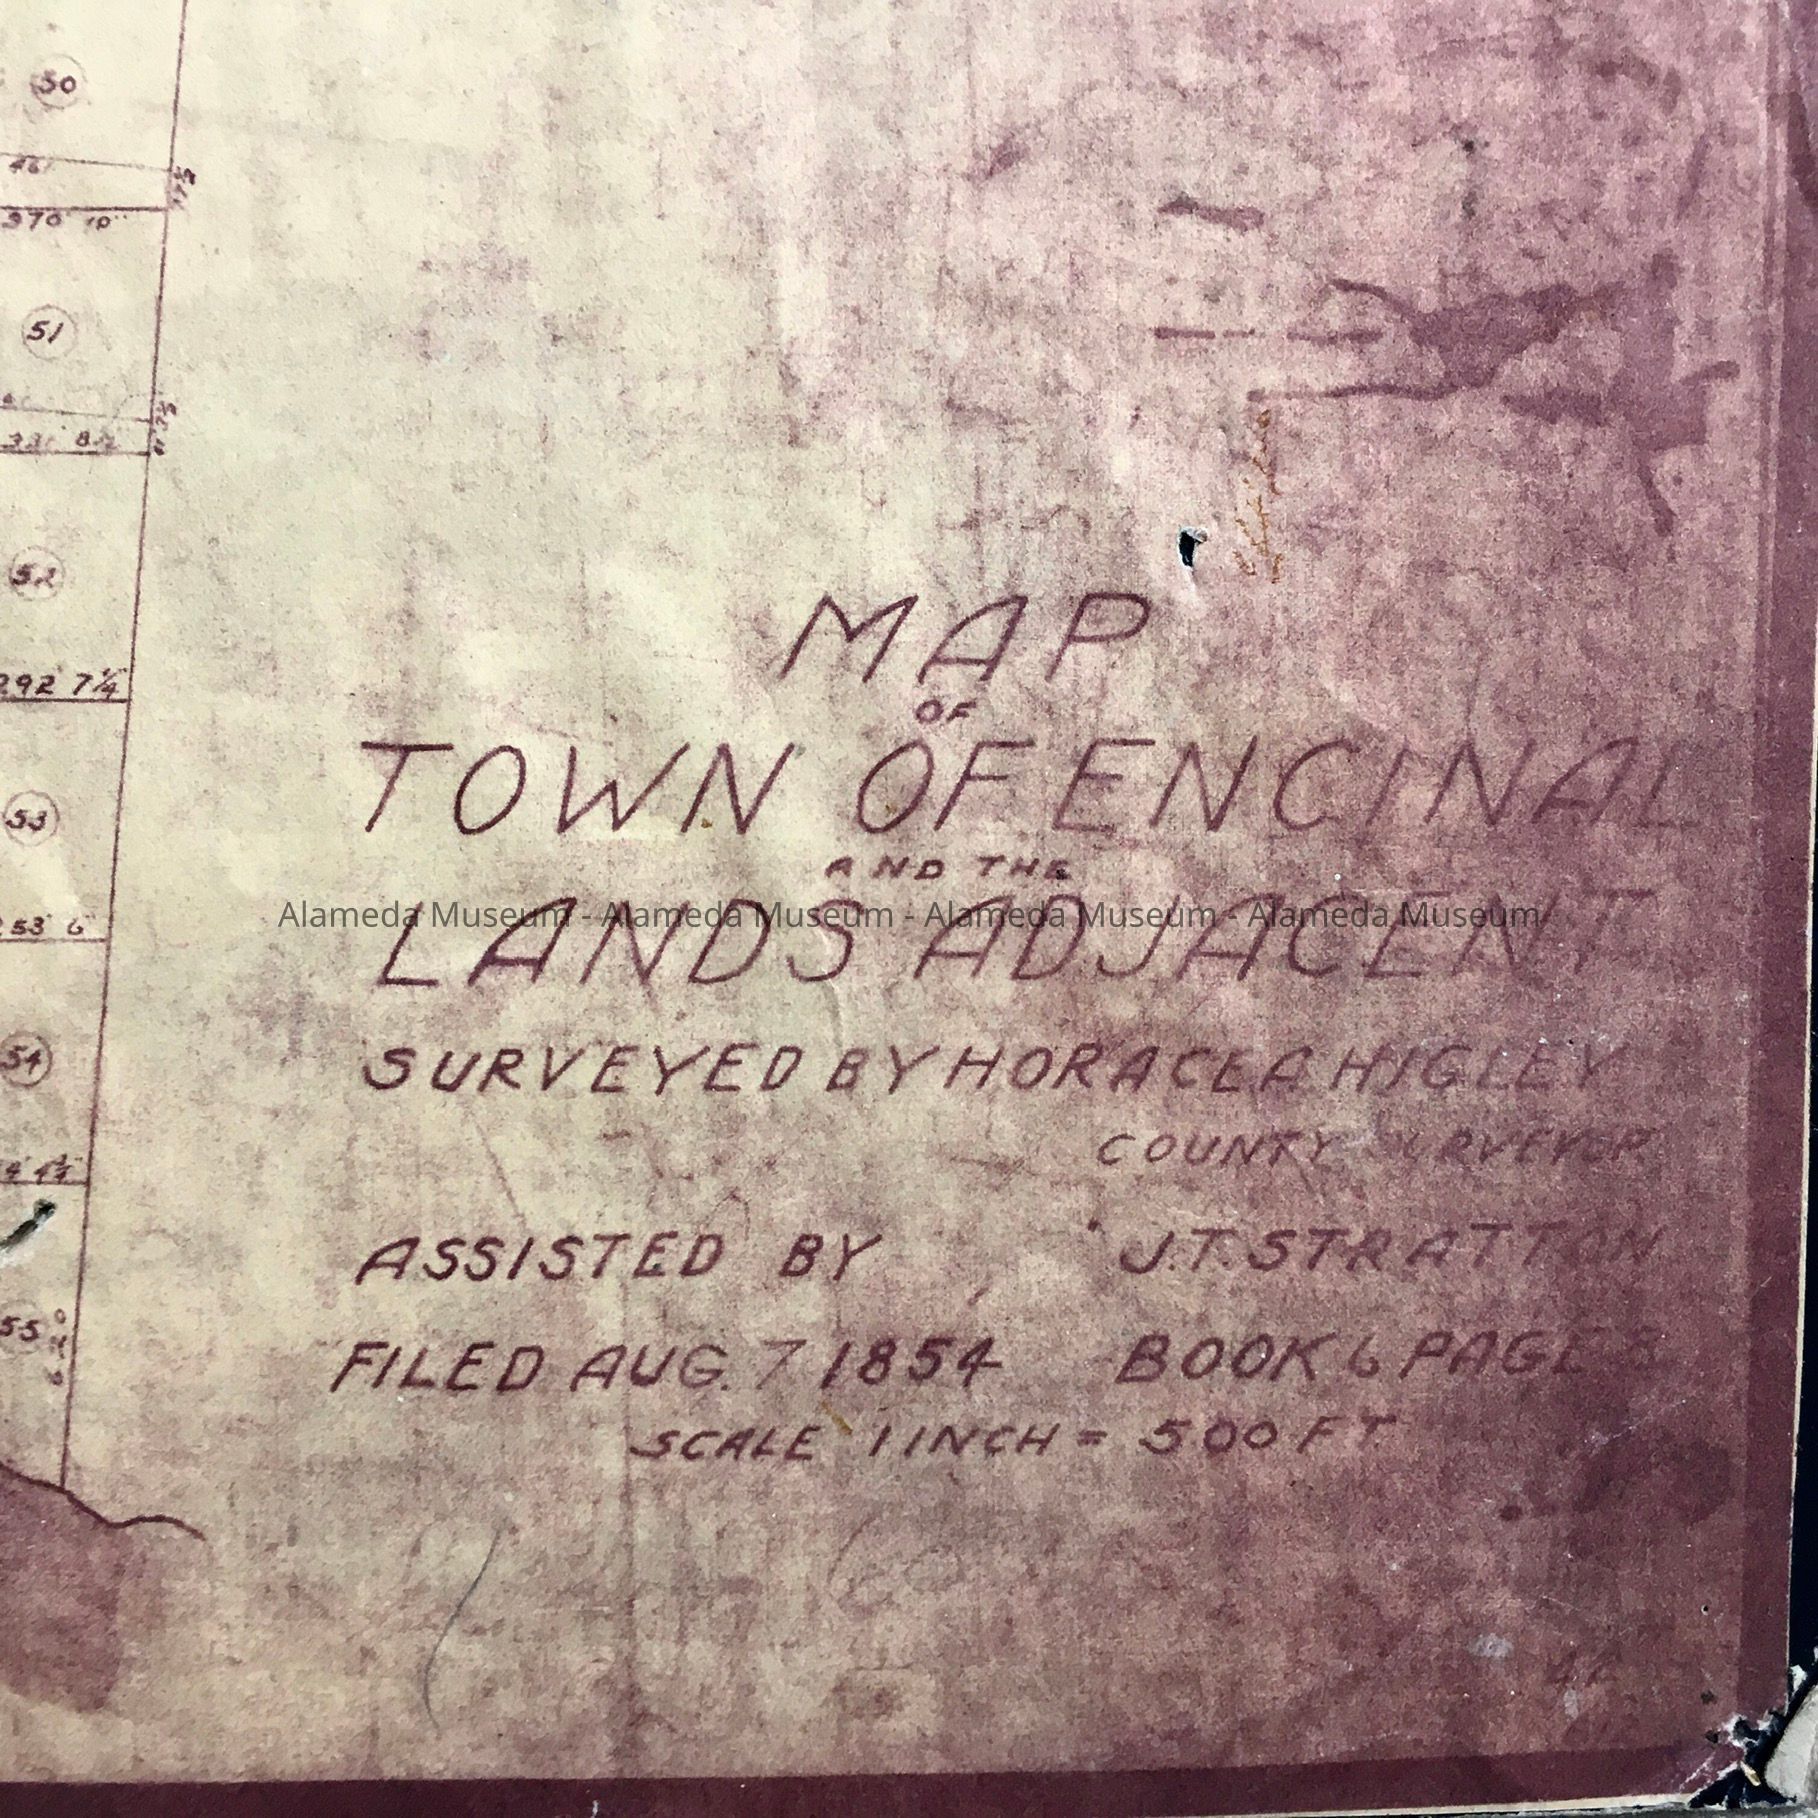 50
46'
370' 10"
51
331' 8½
52
292' 7¼"
53
53' 6"
54
4¾"
55
MAP
OF
TOWN OF ENCINAL
AND THE
LANDS ADJACENT
Alameda Museum - Alameda Museum - Alameda Museum - Alameda Museum
SURVEYED BY HORACE A HIGLEY
COUNTY SURVEYOR
ASSISTED BY J.T. STRATTON
FILED AUG. 7 1854 BOOK 6 PAGE 8
SCALE 1 INCH = 500 FT